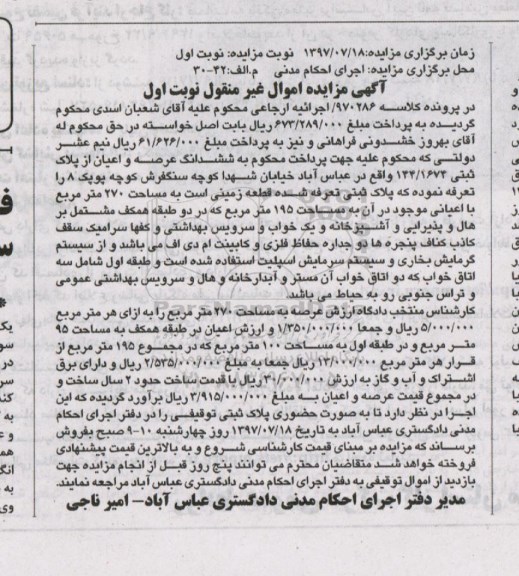 زمان برگزاری مزایده: ۱۳۹۷/۰۷/۱۸ نوبت مزایده: نوبت اول
محل برگزاری مزایده: اجرای احکام مدنی م.الف: ۳۲-۳۰
آگهی مزایده اموال غیر منقول نوبت اول
در پرونده کلاسه ۹۷۰۲۸۶/ اجرائیه ارجاعی محکوم علیه آقای شعبان اسدی محکوم
گردیده به پرداخت مبلغ ۶۷۳/۲۸۹/۰۰۰ ریال بابت اصل خواسته در حق محکوم له
آقای بهروز خشدونی فراهانی و نیز به پرداخت مبلغ ۶۱/۶۲۶/۰۰۰ ریال نیم عشر
دولتی که محکوم علیه جهت پرداخت محکوم به ششدانگ عرصه و اعیان از پلاک
ثبتی ۱۳۴/۱۶۷۳ واقع در عباس آباد خیابان شهدا کوچه سنگفرش کوچه پوپک ۸ را
تعرفه نموده که پلاک ثبتی تعرفه شده قطعه زمینی است به مساحت ۲۷۰ متر مربع
با اعیانی موجود در آن به مساحت ۱۹۵ متر مربع که در دو طبقه همکف مشتمل بر
هال و پذیرایی و آشپزخانه و یک خواب و سرویس بهداشتی و کفها سرامیک سقف
کاذب کناف پنجره ها دو جداره حفاظ فلزی و کابینت ام دی اف می باشد و از سیستم
گرمایش بخاری و سیستم سرمایش اسپلیت استفاده شده است و طبقه اول شامل سه
اتاق خواب که دو اتاق خواب آن مستر و آبدارخانه و هال و سرویس بهداشتی عمومی
و تراس جنوبی رو به حیاط می باشد
کارشناس منتخب دادگاه ارزش عرصه به مساحت ۲۷۰ متر مربع را به ازای هر متر مربع
۵/۰۰۰/۰۰۰ ریال و جمعا ۱/۳۵۰/۰۰۰/۰۰۰ و ارزش اعیان در طبقه همکف به مساحت ۹۵
متر مربع و در طبقه اول به مساحت ۱۰۰ متر مربع که در مجموع ۱۹۵ متر مربع از
قرار هر متر مربع ۱۳/۰۰۰/۰۰۰ ریال جمعا به مبلغ ۲/۵۳۵/۰۰۰/۰۰۰ ریال و دارای برق
اشتراک و آب و گاز به ارزش ۳۰/۰۰۰/۰۰۰ ریال با قدمت ساخت حدود ۲ سال ساخت و
در مجموع قیمت عرصه و اعیان به مبلغ ۳/۹۱۵/۰۰۰/۰۰۰ ریال برآورد گردیده که این
اجرا در نظر دارد تا به صورت حضوری پلاک ثبتی توقیفی را در دفتر اجرای احکام
مدنی دادگستری عباس آباد به تاریخ ۱۳۹۷/۰۷/۱۸ روز چهارشنبه ۱۰-۹ صبح بفروش
برساند که مزایده بر مبنای قیمت کارشناسی شروع و به بالاترین قیمت پیشنهادی
فروخته خواهد شد متقاضیان محترم می توانند پنج روز قبل از انجام مزایده جهت
بازدید از اموال توقیفی به دفتر اجرای احکام مدنی دادگستری عباس آباد مراجعه نمایند.
مدیر دفتر اجرای احکام مدنی دادگستری عباس آباد- امیر ناجی